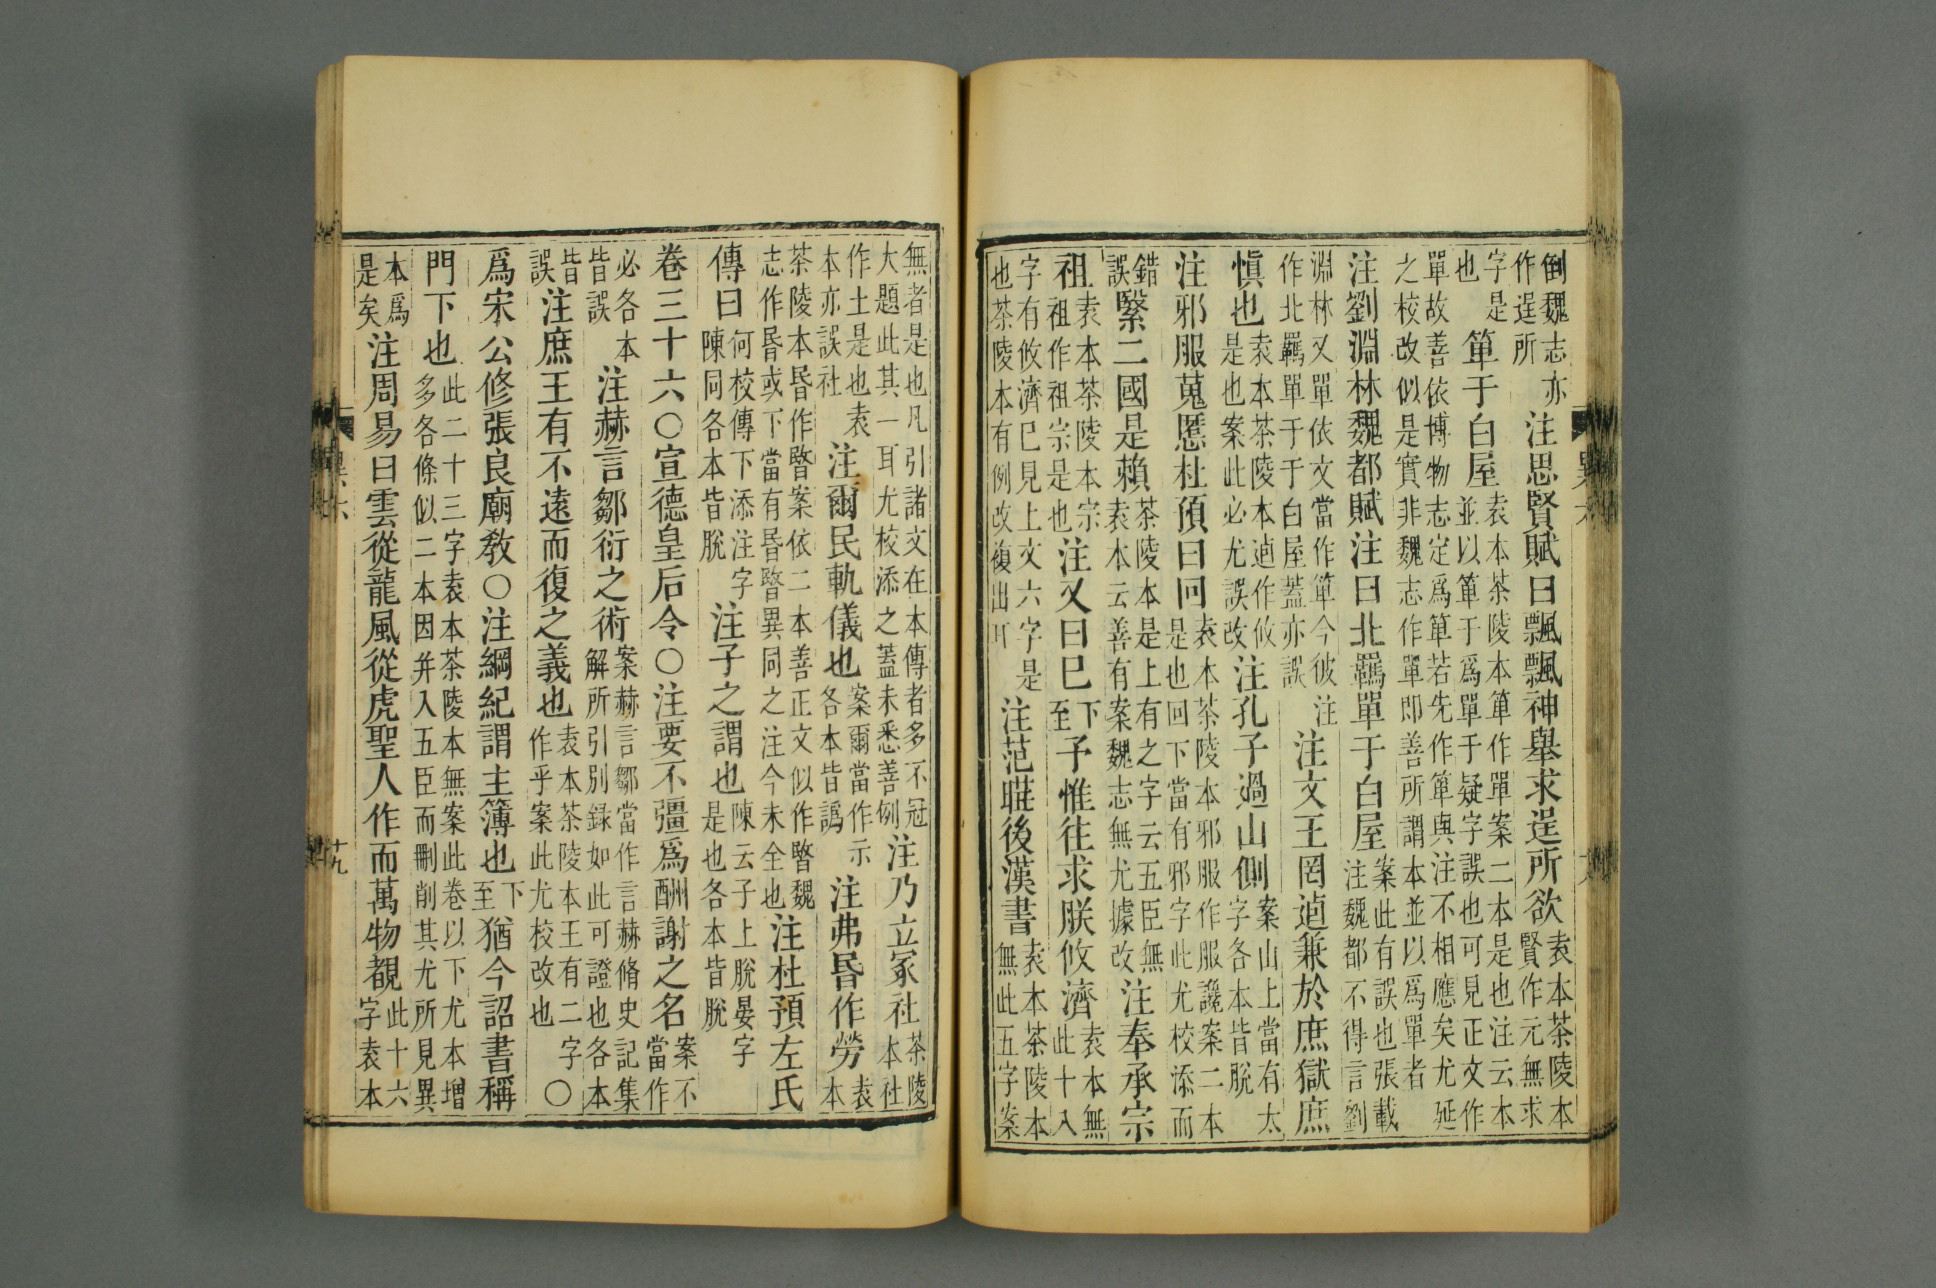 倒魏志亦作逞所注思賢賦曰飄飄神舉求逞所欲袁本茶陵本賢作元無求
字是也箄于白屋袁本茶陵本箄作單案二本是也注云本並以箄于爲單于疑字誤也可見正文作
單故善依博物志定爲箄若先作箄與注不相應矣尤延之校改似是實非魏志作單即善所謂本並以爲單者
注劉淵林魏都賦注曰北羈單于白屋案此有誤也張載注魏都不得言劉
淵林又單依文當作箄今彼注作北羈單于于白屋蓋亦誤注文王罔逌兼於庶獄庶
慎也袁本茶陵本逌作攸是也案此必尤誤改注孔子過山側案山上當有太字各本皆脫
注邪服蒐慝杜預曰回袁本茶陵本邪服作服讒案二本是也回下當有邪字此尤校添而
錯誤繄二國是賴茶陵本是上有之字云五臣無袁本云善有案魏志無尤據改注奉承宗
祖袁本茶陵本宗祖作祖宗是也注又曰巳下至予惟往求朕攸濟袁本無此十入
字有攸濟巳見上文六字是也茶陵本有例改複出卩注范曄後漢書袁本茶陵本無此五字案
無者是也凡引諸文在本傳者多不冠大題此其一耳尤校添之蓋未悉善例注乃立冢社茶陵本社
作土是也袁本亦誤社注爾民軌儀也案爾當作示各本皆譌注弗昏作勞袁本
茶陵本昏作暋案依二本善正文似作暋魏志作昏或下當有昏暋異同之注今未全也注杜預左氏
傳曰何校傳下添注字陳同各本皆脫注子之謂也陳云子上脫晏字是也各本皆脫
卷三十六〇宣德皇后令〇注要不彊爲酬謝之名案不當作
必各本皆誤注赫言鄒衍之術案赫言鄒當作言赫脩史記集解所引別録如此可證也各本
皆誤注庶王有不遠而復之義也袁本茶陵本王有二字作乎案此尤校改也〇
爲宋公修張良廟敎〇注綱紀謂主簿也下至猶今詔書稱
門下也此二十三字袁本茶陵本無案此卷以下尤本增多各條似二本因并入五臣而刪削其尤所見異
本爲是矣注周易曰雲從龍風從虎聖人作而萬物覩此十六字袁本
異六
十九